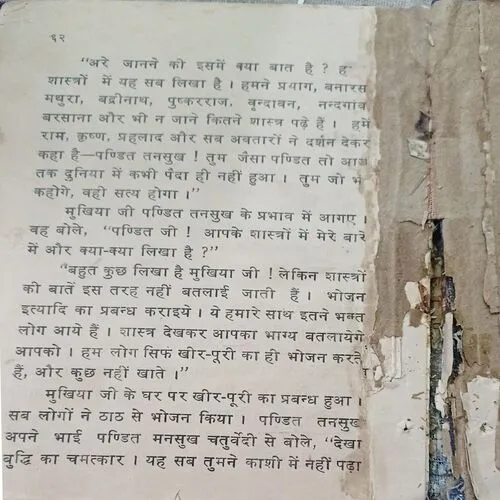 ६२
“अरे जानने की इसमें क्या बात है ? ह
शास्त्रों में यह सब लिखा है । हमने प्रयाग, बनारस
मथुरा, बद्रीनाथ, पुष्करराज, वृन्दावन, नन्दगांव
बरसाना और भी न जाने कितने शास्त्र पढ़े हैं । हमें
राम, कृष्ण, प्रहलाद और सब अवतारों ने दर्शन देकर
कहा है—पण्डित तनसुख ! तुम जैसा पण्डित तो आज
तक दुनिया में कभी पैदा ही नहीं हुआ । तुम जो भ
कहोगे, वही सत्य होगा ।”
मुखिया जी पण्डित तनसुख के प्रभाव में आगए ।
वह बोले, “पण्डित जी ! आपके शास्त्रों में मेरे बारे
में और क्या-क्या लिखा है ?”
“बहुत कुछ लिखा है मुखिया जी ! लेकिन शास्त्रों
की बातें इस तरह नहीं बतलाई जाती हैं । भोजन
इत्यादि का प्रबन्ध कराइये । ये हमारे साथ इतने भक्त
लोग आये हैं । शास्त्र देखकर आपका भाग्य बतलायेगे
आपको । हम लोग सिफ खीर-पूरी का ही भोजन करते
हैं, और कुछ नहीं खाते ।”
मुखिया जी के घर पर खीर-पूरी का प्रबन्ध हुआ ।
सब लोगों ने ठाठ से भोजन किया । पण्डित तनसुख
अपने भाई पण्डित मनसुख चतुर्वेदी से बोले, “देखा
बुद्धि का चमत्कार । यह सब तुमने काशी में नहीं पढ़ा